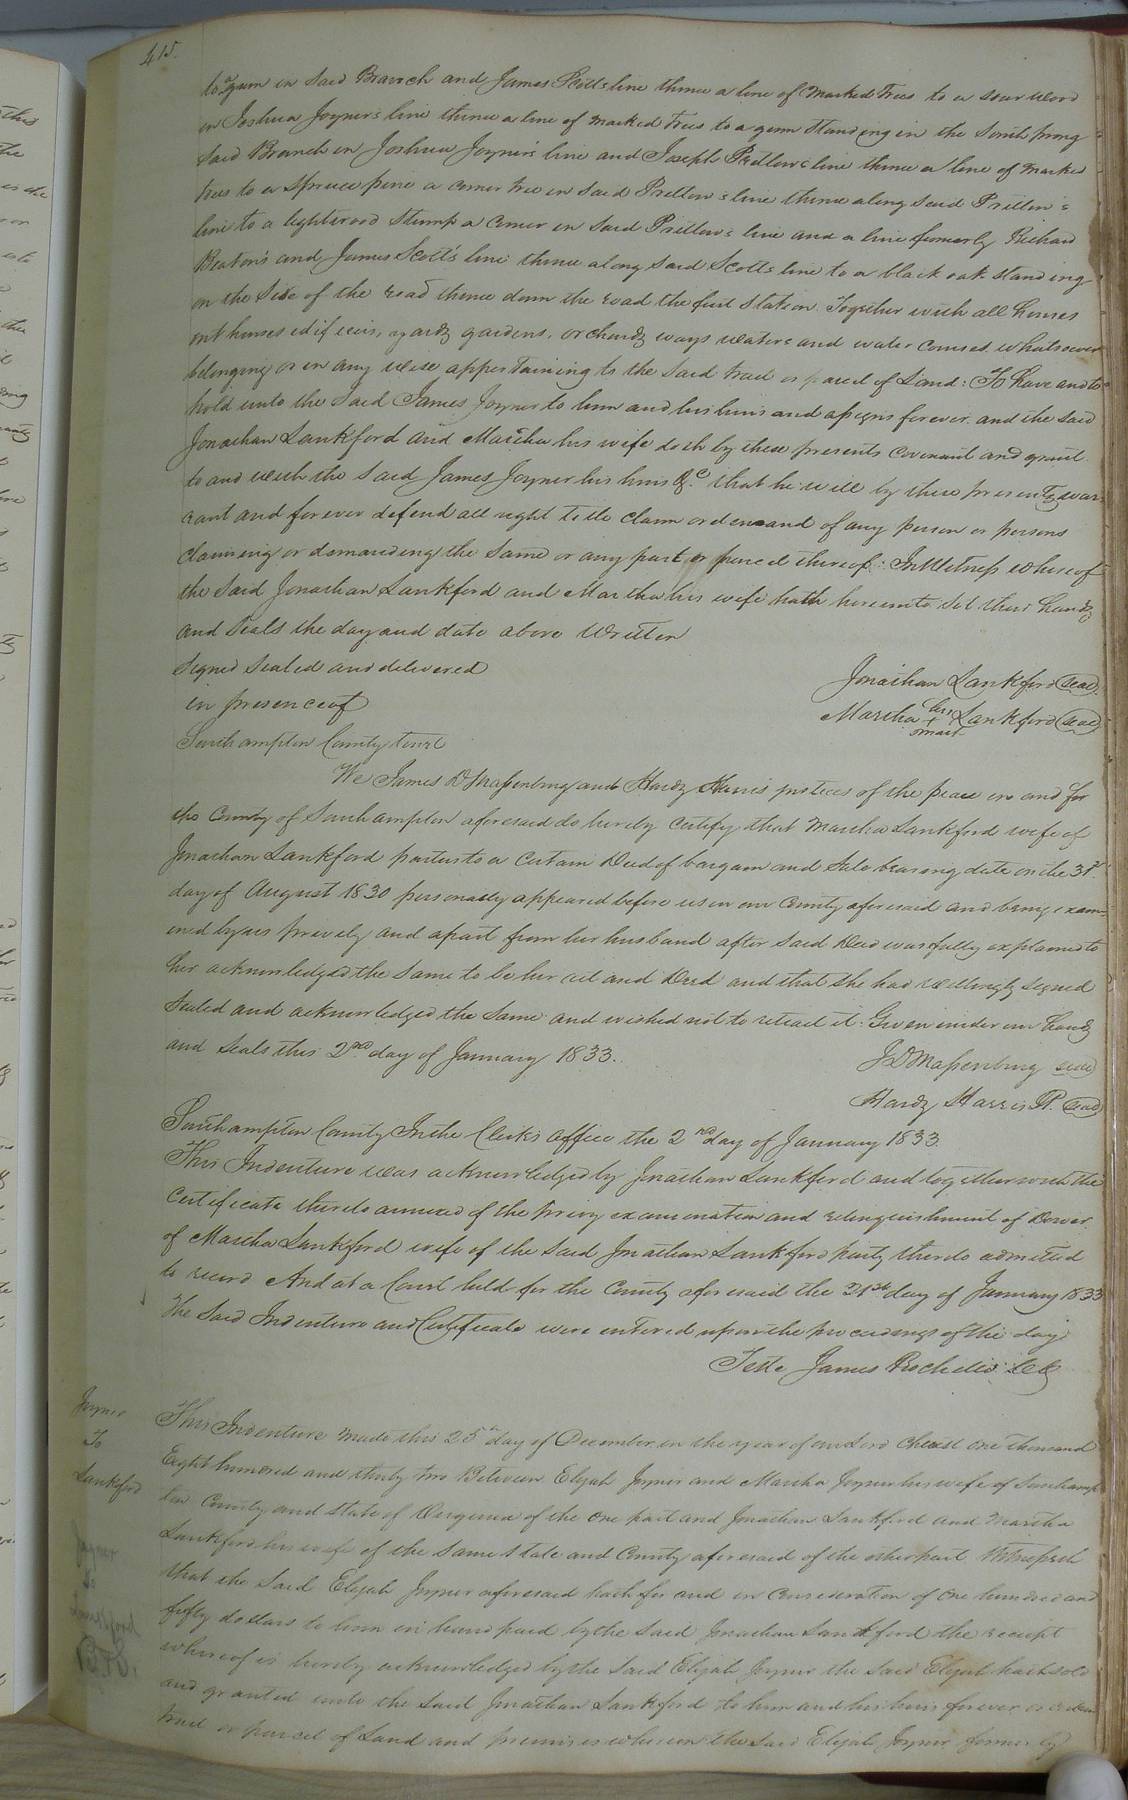 415.
to a gum in said Branch and James Scotts line thence a line of marked trees to a sour wood
in Joshua Joyner's line thence a line of marked trees to a gum standing in the south prong
said Branch in Joshua Joyner's line and Joseph Pretlow's line thence a line of marked
trees to a spruce pine a corner tree in said Pretlow's line thence along said Pretlow's
line to a lightwood stump a corner in said Pretlow's line and a line formerly Richard
Beaton's and James Scott's line thence along said Scotts line to a black oak standing
on the side of the road thence down the road the first station. Together with all houses
out houses edifices, yards gardens, orchards ways waters and water courses whatsoever
belonging or in any wise appertaining to the said tract or parcel of Land: To have and to
hold unto the said James Joyner to him and his heirs and assigns forever. and the said
Jonathan Lankford and Martha his wife doth by these presents covenant and grant
to and with the said James Joyner his heirs &c. that he will by these presents war
rant and forever defend all right title claim or demand of any person or persons
claiming or demanding the same or any part or parcel thereof: In Witness whereof
the said Jonathan Lankford and Martha his wife hath hereunto set their hands
and seals the day and date above Written
Signed sealed and delivered
in presence of
Jonathan Lankford seal
Martha her + mark Lankford seal
Southampton County towit
We James D Massenburg and Hardy Harris justices of the peace in and for
the County of Southampton aforesaid do hereby certify that Martha Lankford wife of
Jonathan Lankford parties to a certain Deed of bargain and sale bearing date on the 31st
day of August 1830 personally appeared before us in our County aforesaid and being exam-
ined by us privily and apart from her husband after said Deed was fully explained to
her acknowledged the same to be her act and Deed and that she had willingly signed
sealed and acknowledged the same and wished not to retract it. Given under our hands
and seals this 2nd day of January 1833.
J D Massenburg seal
Hardy Harris seal
Southampton County In the Clerk's office the 2nd day of January 1833.
This Indenture was acknowledged by Jonathan Lankford and together with the
certificate thereto annexed of the privy examination and relinquishment of Dower
of Martha Lankford wife of the said Jonathan Lankford party thereto admitted
to record And at a Court held for the County aforesaid the 21st day of January 1833
The said Indenture and Certificate were entered upon the proceedings of the day
Teste James Rochelle Clk
Joyner
To
Lankford
This Indenture made this 25th day of December in the year of our Lord Christ one thousand
Eight hundred and thirty two Between Elijah Joyner and Martha Joyner his wife of Southamp
ton County and state of Virginia of the one part and Jonathan Lankford and Martha
Lankford his wife of the same state and County aforesaid of the other part Witnesseth
that the said Elijah Joyner aforesaid hath for and in consideration of one hundred and
fifty dollars to him in hand paid by the said Jonathan Lankford the receipt
whereof is hereby acknowledged by the said Elijah Joyner the said Elijah hath sold
and granted unto the said Jonathan Lankford to him and his heirs forever a certain
tract or parcel of Land and premises whereon the said Elijah Joyner formerly